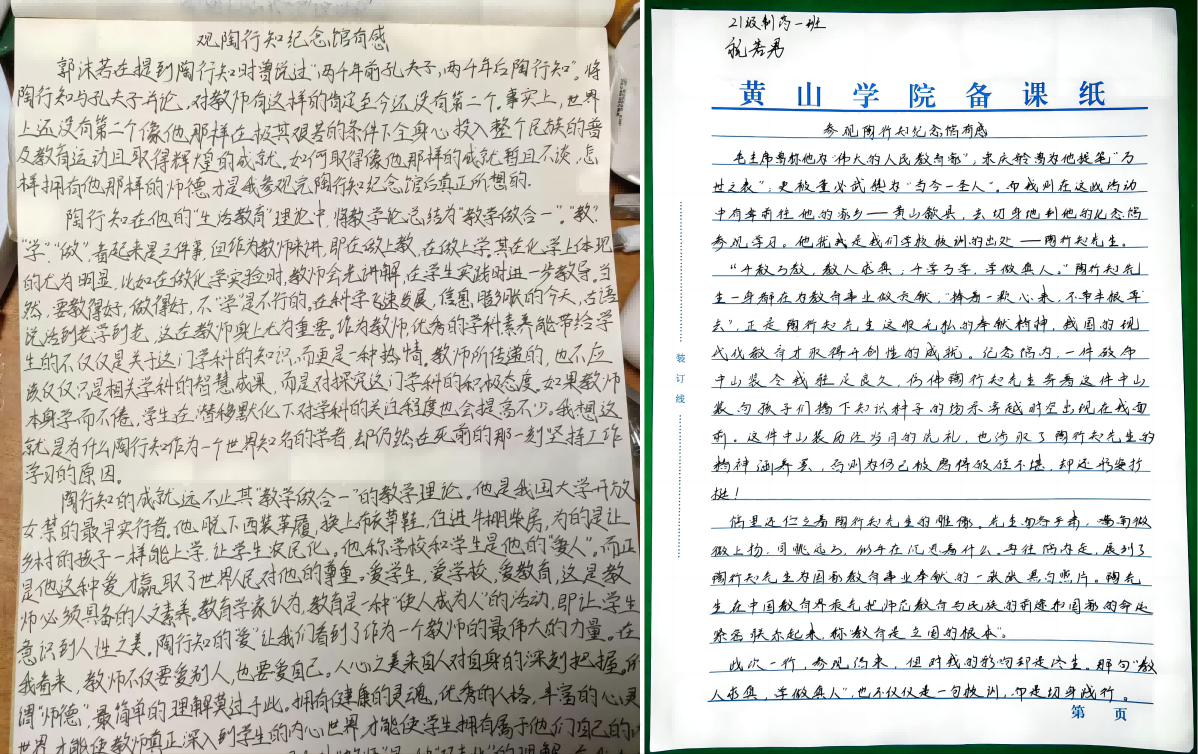 观陶行知纪念馆有感
郭沫若在提到陶行知时曾说过“两千年前孔夫子,两千年后陶行知”。将
陶行知与孔夫子并论,对教师有这样的肯定至今还没有第二个。事实上,世界
上还没有第二个像他那样在极其艰苦的条件下全身心投入整个民族的普
及教育运动且取得辉煌的成就。如何取得像他那样的成就暂且不谈,怎
样拥有他那样的师德才是我参观完陶行知纪念馆后真正所想的.
陶行知在他的“生活教育”理论中,将教学论总结为“教学做合一”。“教”、
“学”、“做”看起来是三件事,但作为教师来讲,即在做上教,在做上学。其在化学上体现
的尤为明显,比如在做化学实验时,教师会先讲解,在学生实践时进一步教导。当
然,要教得好,做得好,不“学”是不行的。在科学飞速发展,信息膨胀的今天,古语
说活到老学到老,这在教师身上尤为重要。作为教师,优秀的学科素养能带给学
生的不仅仅是关于这门学科的知识,而更是一种热情。教师所传递的,也不应
该仅仅只是相关学科的智慧成果,而是对探究这门学科的积极态度。如果教师
本身学而不倦,学生在潜移默化下对学科的关注程度也会提高不少。我想这
就是为什么陶行知作为一个世界知名的学者,却仍然在死前的那一刻坚持工作
学习的原因。
陶行知的成就远不止其“教学做合一”的教学理论。他是我国大学开放
女禁的最早实行者。他脱下西装革履,换上布衣草鞋,住进牛棚柴房,为的是让
乡村的孩子一样能上学,让学生农民化。他称学校和学生是他的“爱人”。而正
是他这种爱才赢取了世界人民对他的尊重。爱学生,爱学校,爱教育,这是教
师必须具备的人文素养。教育学家认为,教育是一种“使人成为人”的活动,即让学生
意识到人性之美。陶行知的“爱”让我们看到了作为一个教师的最伟大的力量。在
我看来,教师不仅要爱别人,也要爱自己。人心之美来自人对自身的深刻把握。所
谓“师德”最简单的理解莫过于此,拥有健康的灵魂,优秀的人格,丰富的心灵
世界才能使教师真正深入到学生的内心世界,才能使学生拥有属于他们自己的
21级制药一班
黄山学院备课纸
参观陶行知纪念馆有感
毛主席曾称他为“伟大的人民教育家”,宋庆龄曾为他题笔“万
世之表”,更被董必武称为“当今一圣人”。而我则在这次活动
中有幸前往他的家乡——黄山歙县,去切身地到他的纪念馆
参观学习。他就是我们学校校训的出处——陶行知先生。
“千教万教,教人求真;千学万学,学做真人。”陶行知先
生一身都在为教育事业做贡献,“捧着一颗心来,不带半根草
去”,正是陶行知先生这般无私的奉献精神,我国的现
代化教育才取得开创性的成就。纪念馆内,一件破布
中山装令我驻足良久,仿佛陶行知先生穿着这件中山
装向孩子们播下知识种子的场景穿越时空出现在我面
前。这件中山装历经岁月的洗礼,也汲取了陶行知先生的
精神涵养,否则为何已被磨得破碎不堪,却还形姿挺
拔!
馆里还伫立着陶行知先生的雕像,先生,嘴角微
微上扬,目眺远方,似乎在沉思着什么。再往馆内走,展列了
陶行知先生为国家教育事业奉献的一张张黑白照片。陶先
生在中国教育界最先把师范教育与民族的前途和国家的命运
紧密联系起来,称“教育是立国的根本”。
此次一行,参观得来,但对我的影响却是终生。那句“教
人求真,学做真人”,也不仅仅是一句校训,而是切身践行。
装订线
第 页